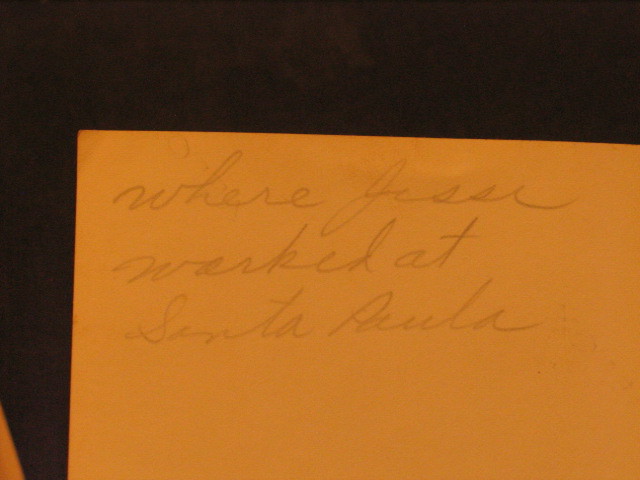 where Jesse
worked at
Santa Paula